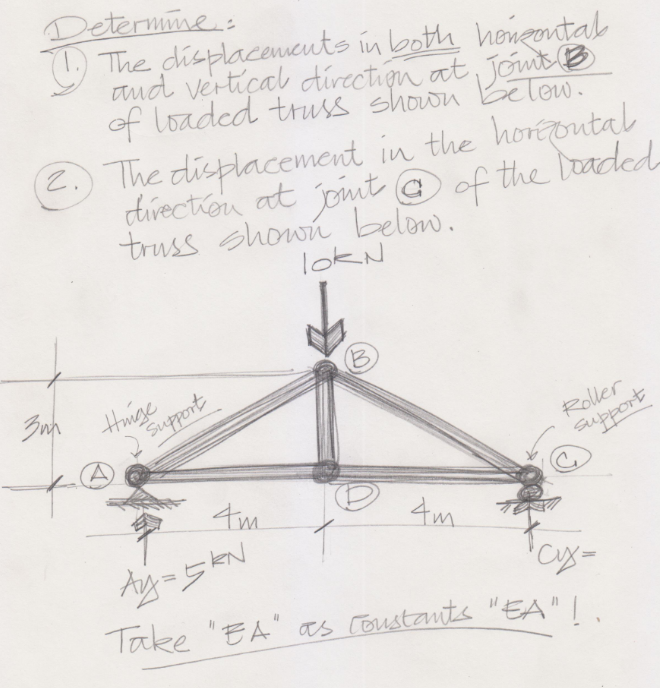 Determine:
1. The displacements in both horizontal
and vertical direction at joint B
of loaded truss shown below.
2. The displacement in the horizontal
direction at joint C of the loaded
truss shown below.
10kN
B
3m
Hinge
support
Roller
support
A
C
D
4m
4m
Ay=5kN
Cy=
Take "EA" as constants "EA"!.